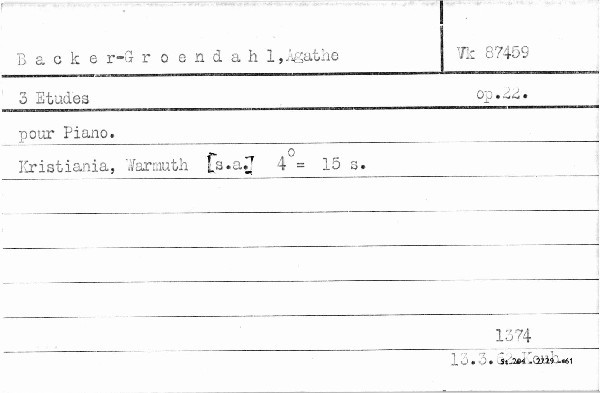 B a c k e r-G r o e n d a h l,Agathe Vk 87459
3 Etudes op.22.
pour Piano.
Kristiania, Warmuth [s.a.] 4°= 15 s.
1374
13.3.